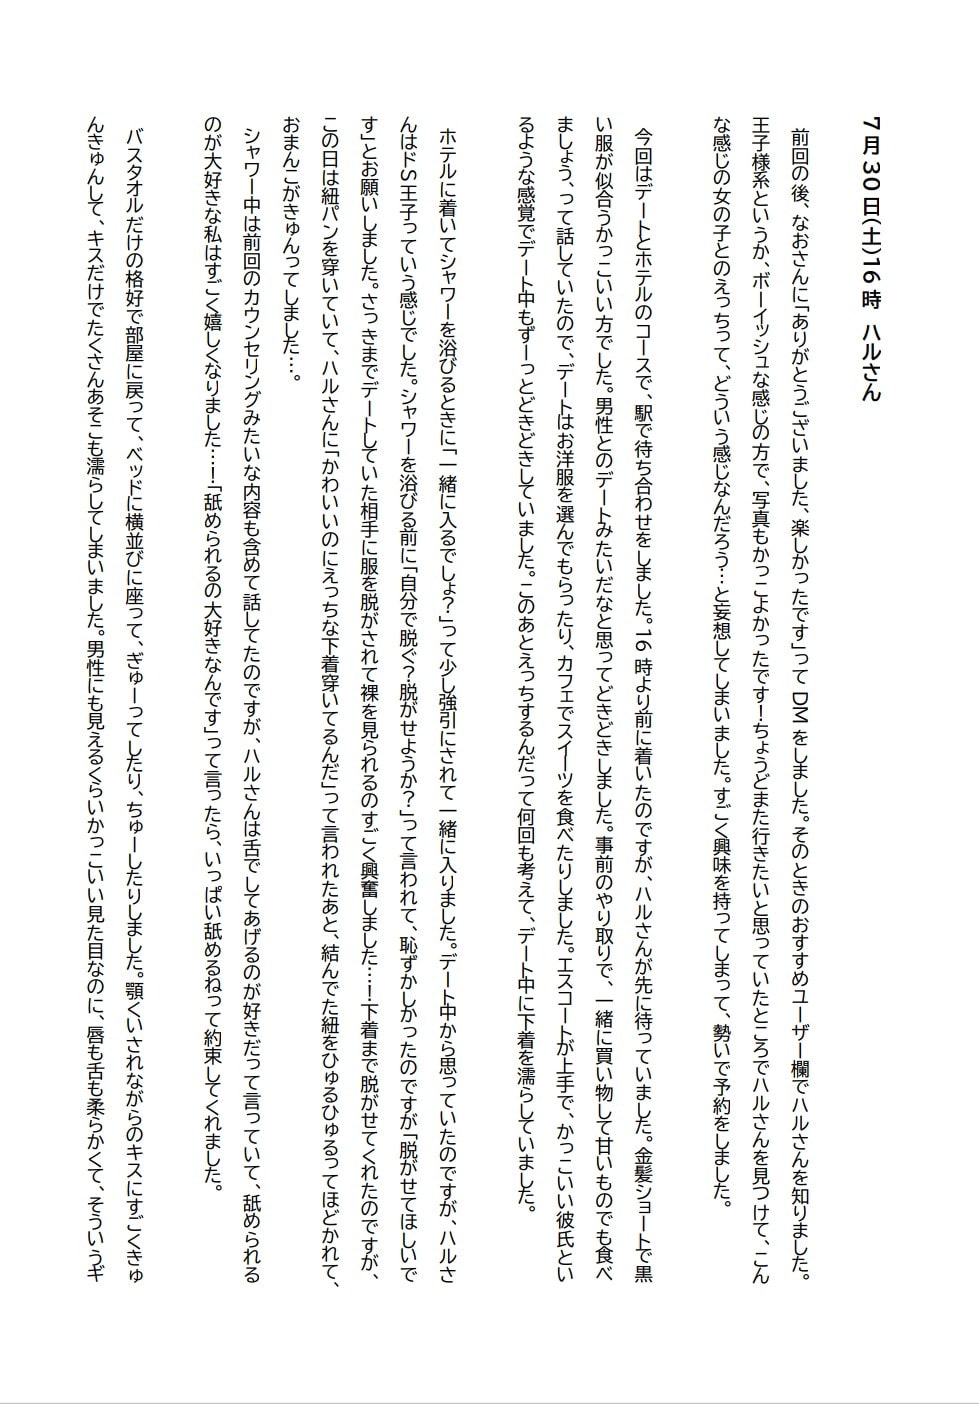 7月30日(土)16時 ハルさん
前回の後、なおさんに「ありがとうございました、楽しかったです」って DM をしました。そのときのおすすめユーザー欄でハルさんを知りました。
王子様系というか、ボーイッシュな感じの方で、写真もかっこよかったです！ちょうどまた行きたいと思っていたところでハルさんを見つけて、こん
な感じの女の子とのえっちって、どういう感じなんだろう…と妄想してしまいました。すごく興味を持ってしまって、勢いで予約をしました。
今回はデートとホテルのコースで、駅で待ち合わせをしました。16 時より前に着いたのですが、ハルさんが先に待っていました。金髪ショートで黒
い服が似合うかっこいい方でした。男性とのデートみたいだなと思ってどきどきしました。事前のやり取りで、一緒に買い物して甘いものでも食べ
ましょう、って話していたので、デートはお洋服を選んでもらったり、カフェでスイーツを食べたりしました。エスコートが上手で、かっこいい彼氏とい
るような感覚でデート中もずーっとどきどきしていました。このあとえっちするんだって何回も考えて、デート中に下着を濡らしていました。
ホテルに着いてシャワーを浴びるときに「一緒に入るでしょ？」って少し強引にされて一緒に入りました。デート中から思っていたのですが、ハルさ
んはドS王子っていう感じでした。シャワーを浴びる前に「自分で脱ぐ？脱がせようか？」って言われて、恥ずかしかったのですが「脱がせてほしいで
す」とお願いしました。さっきまでデートしていた相手に服を脱がされて裸を見られるのすごく興奮しました…！下着まで脱がせてくれたのですが、
この日は紐パンを穿いていて、ハルさんに「かわいいのにえっちな下着穿いてるんだ」って言われたあと、結んでた紐をひゅるひゅるってほどかれて、
おまんこがきゅんってしました…。
シャワー中は前回のカウンセリングみたいな内容も含めて話してたのですが、ハルさんは舌でしてあげるのが好きだって言っていて、舐められる
のが大好きな私はすごく嬉しくなりました…！「舐められるの大好きなんです」って言ったら、いっぱい舐めるねって約束してくれました。
バスタオルだけの格好で部屋に戻って、ベッドに横並びに座って、ぎゅーってしたり、ちゅーしたりしました。顎くいされながらのキスにすごくきゅ
んきゅんして、キスだけでたくさんあそこも濡らしてしまいました。男性にも見えるくらいかっこいい見た目なのに、唇も舌も柔らかくて、そういうギ